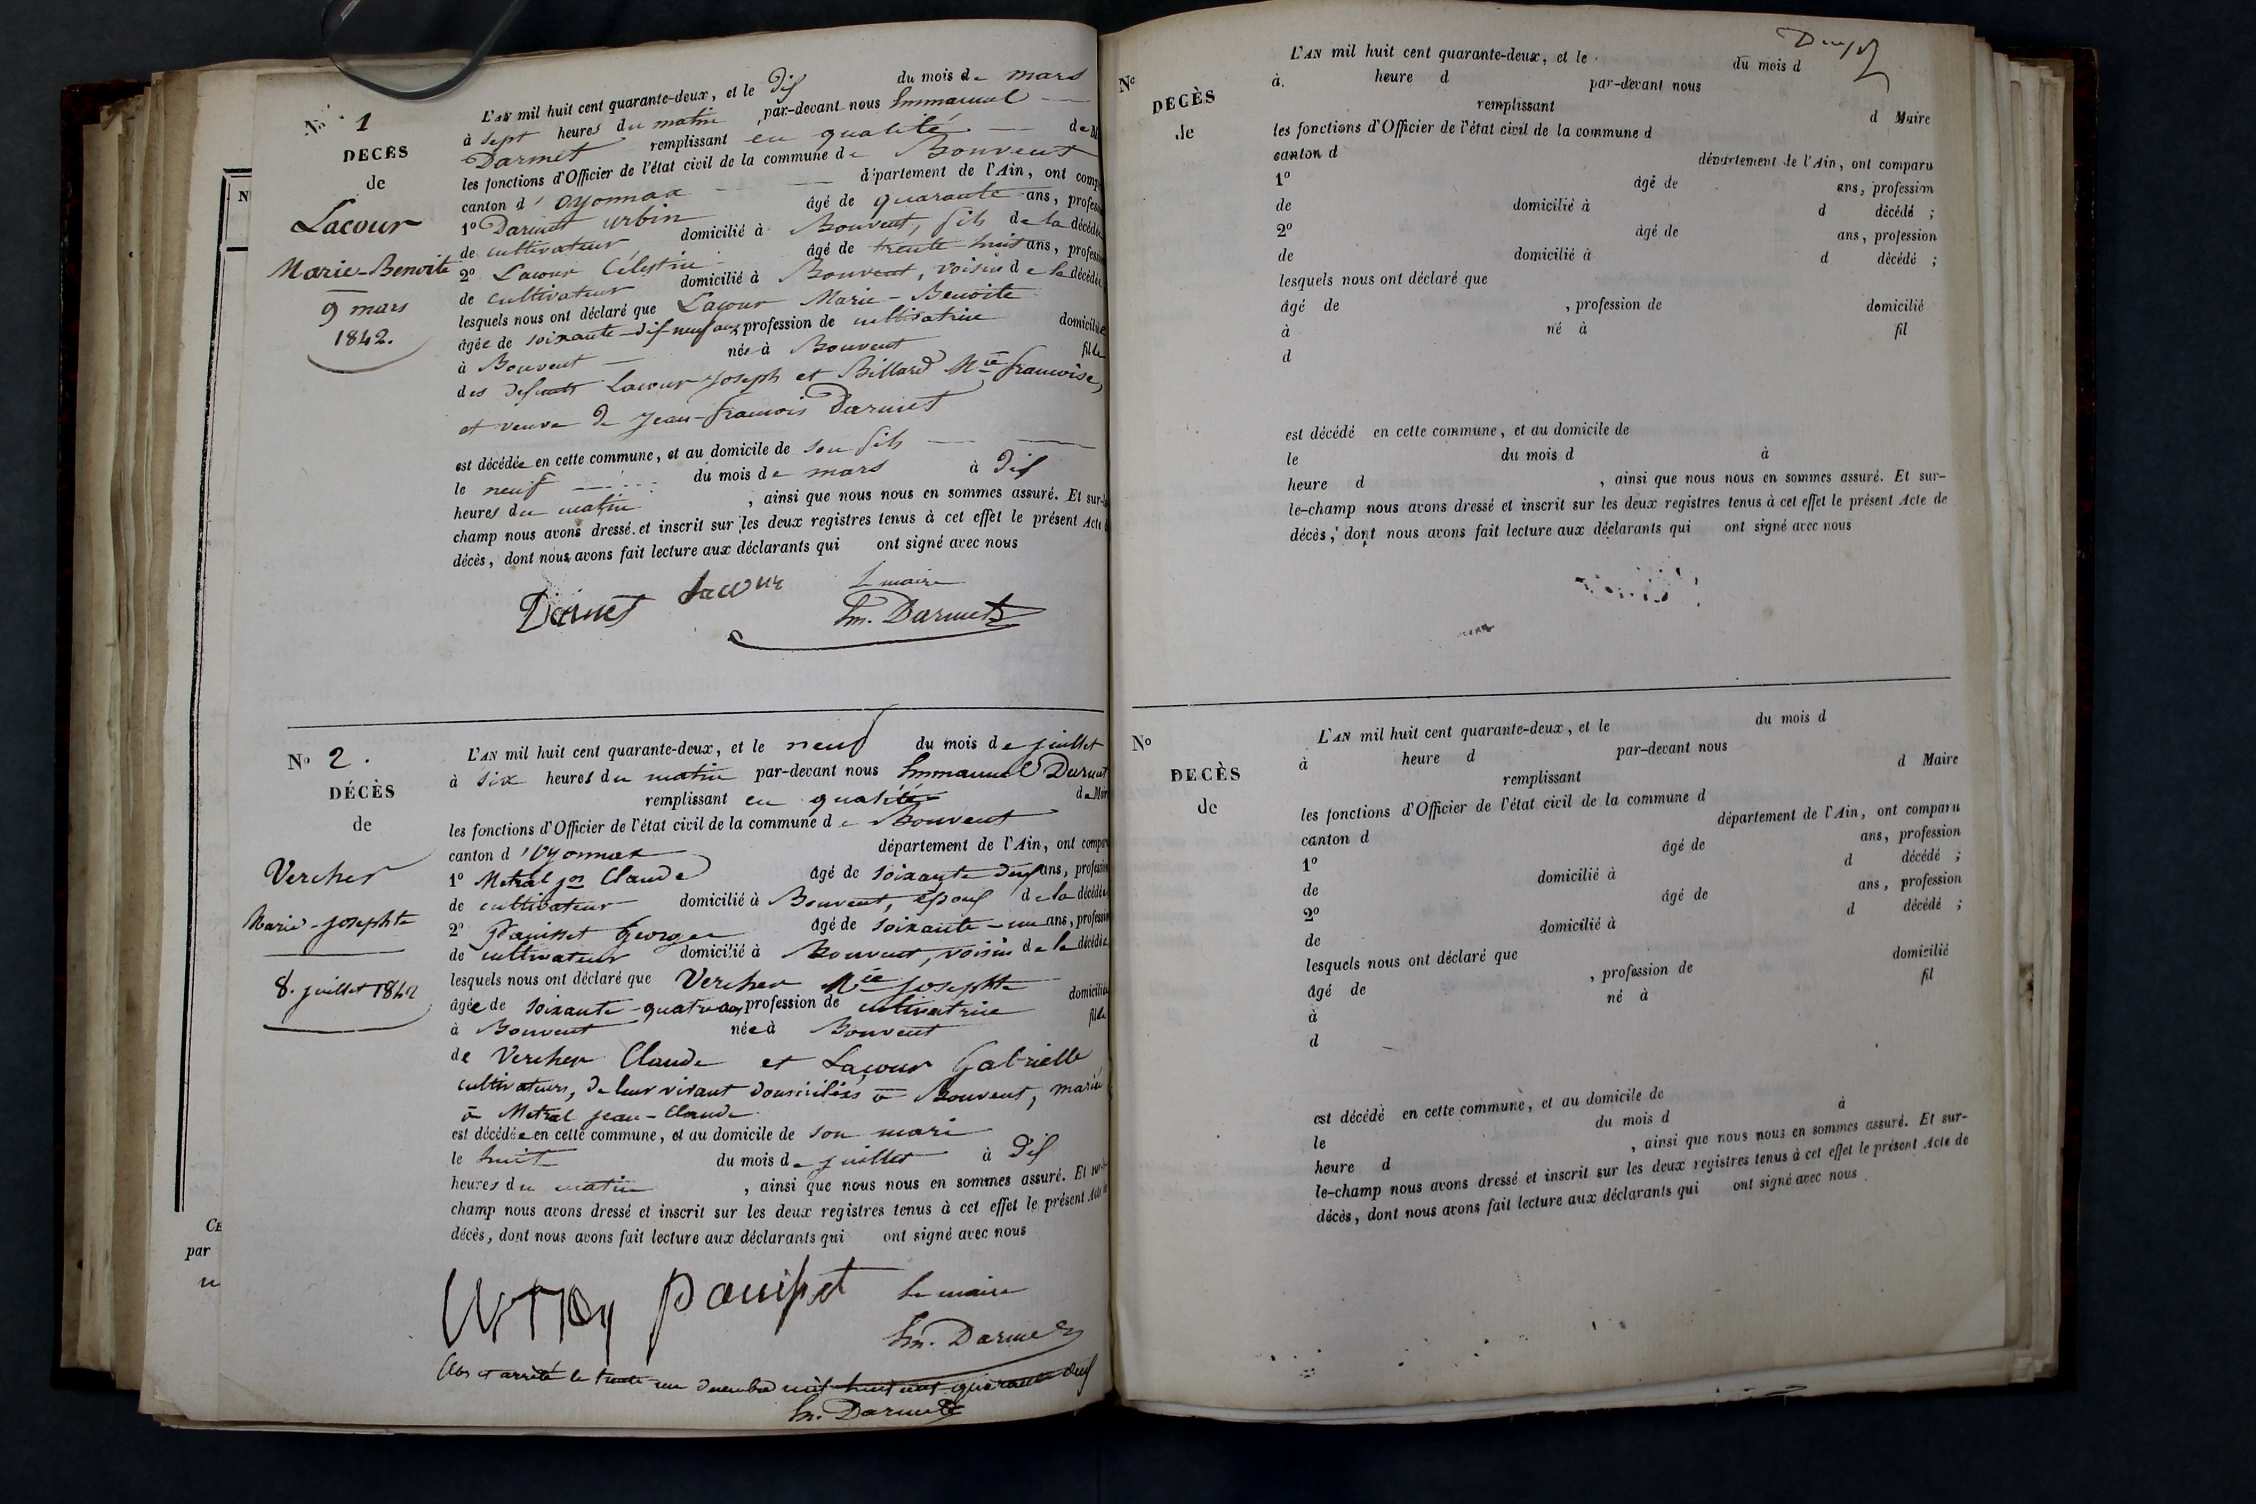 N° 1
DECÈS
de
Lacour
Marie-Benoite
9 mars
1842.
L'AN mil huit cent quarante-deux, et le dix du mois de mars
à sept heures du matin par-devant nous Emmanuel
Darmet remplissant en qualité de
les fonctions d'Officier de l'état civil de la commune de Bouvent
canton d'Oyonnax département de l'Ain, ont
1° Darmet Urbin âgé de quarante ans,
de cultivateur domicilié à Bouvent, fils de la décédée
2° Lacour Célestin âgé de trente-huit ans,
de cultivateur domicilié à Bouvent, voisin de la décédée
lesquels nous ont déclaré que Lacour Marie-Benoite
âgée de soixante-dix-neuf ans profession de cultivatrice
à Bouvent née à Bouvent fille
des défunts Lacour Joseph et Billard Mie françoise,
et veuve de Jean-françois Darmet
est décédée en cette commune, et au domicile de son fils
le neuf du mois de mars à dix
heures du matin, ainsi que nous nous en sommes assuré. Et sur-le-
champ nous avons dressé et inscrit sur les deux registres tenus à cet effet le présent Acte
décès, dont nous avons fait lecture aux déclarants qui ont signé avec nous
Darmet Lacour Le maire
Em. Darmet
N° 2.
DÉCÈS
de
Vercher
Marie-Josephte
8. juillet 1842
L'AN mil huit cent quarante-deux, et le neuf du mois de juillet
à six heures du matin par-devant nous Emmanuel Darmet
remplissant en qualité de
les fonctions d'Officier de l'état civil de la commune de Bouvent
canton d'Oyonnax département de l'Ain, ont
1° Metral Jn Claude âgé de soixante deux ans,
de cultivateur domicilié à Bouvent, époux de la décédée
2° Pauisset George âgé de soixante-un ans,
de cultivateur domicilié à Bouvent, voisin de la décédée
lesquels nous ont déclaré que Vercher Mie Josephte
âgée de soixante-quatre ans profession de cultivatrice
à Bouvent née à Bouvent fille
de Vercher Claude et Lacour Gabrielle
cultivateurs, de leur vivant domiciliés à Bouvent, mariée
à Metral Jean-Claude
est décédée en cette commune, et au domicile de son mari
le huit du mois de juillet à dix
heures du matin, ainsi que nous nous en sommes assuré. Et
champ nous avons dressé et inscrit sur les deux registres tenus à cet effet le présent
décès, dont nous avons fait lecture aux déclarants qui ont signé avec nous
Pauisset Le maire
Em. Darmet
Clos et arrêté le trente-un décembre mil huit cent quarante deux
Em. Darmet
CE
par
N°
DECÈS
de
L'AN mil huit cent quarante-deux, et le du mois d
à heure d par-devant nous
remplissant d Maire
les fonctions d'Officier de l'état civil de la commune d
canton d département de l'Ain, ont comparu
1° âgé de ans, profession
de domicilié à d décédé ;
2° âgé de ans, profession
de domicilié à d décédé ;
lesquels nous ont déclaré que
âgé de , profession de domicilié
à né à fil
d
est décédé en cette commune, et au domicile de
le du mois d à
heure d , ainsi que nous nous en sommes assuré. Et sur-
le-champ nous avons dressé et inscrit sur les deux registres tenus à cet effet le présent Acte de
décès, dont nous avons fait lecture aux déclarants qui ont signé avec nous
N°
DECÈS
de
L'AN mil huit cent quarante-deux, et le du mois d
à heure d par-devant nous
remplissant d Maire
les fonctions d'Officier de l'état civil de la commune d
canton d département de l'Ain, ont comparu
1° âgé de ans, profession
de domicilié à d décédé ;
2° âgé de ans, profession
de domicilié à d décédé ;
lesquels nous ont déclaré que
âgé de , profession de domicilié
à né à fil
d
est décédé en cette commune, et au domicile de
le du mois d à
heure d , ainsi que nous nous en sommes assuré. Et sur-
le-champ nous avons dressé et inscrit sur les deux registres tenus à cet effet le présent Acte de
décès, dont nous avons fait lecture aux déclarants qui ont signé avec nous